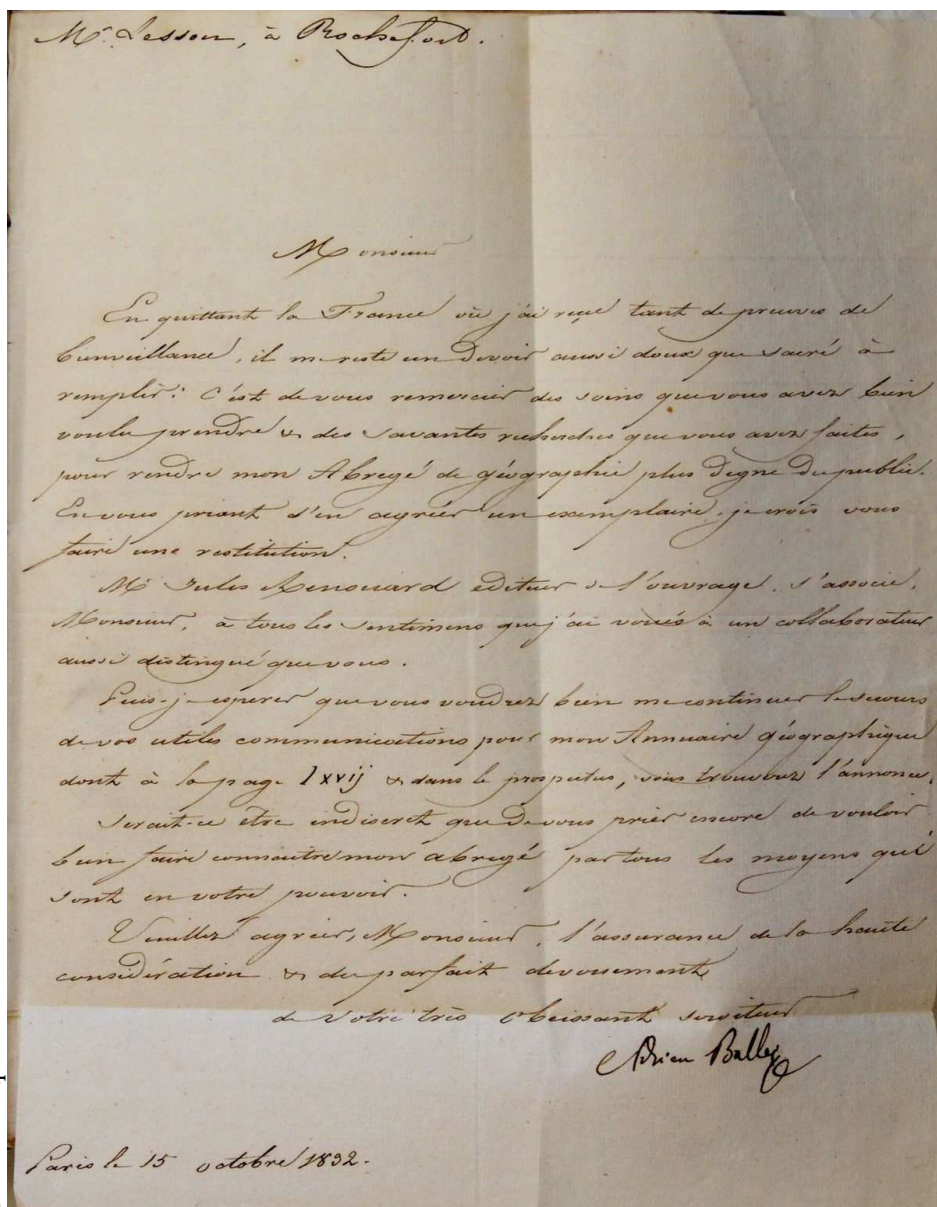 Mr Lesson, à Rochefort.
Monsieur
En quittant la France où j'ai reçu tant de preuves de
bienveillance, il me reste un devoir aussi doux que sacré à
remplir: c'est de vous remercier des soins que vous avez bien
voulu prendre & des savantes recherches que vous avez faites,
pour rendre mon Abregé de géographie plus digne du public.
En vous priant d'en agréer un exemplaire, je crois vous
faire une restitution.
Mr Jules Renouard editeur de l'ouvrage, s'associe,
Monsieur, à tous les sentimens que j'ai voués à un collaborateur
aussi distingué que vous.
Puis-je esperer que vous voudrez bien me continuer le secours
de vos utiles communications pour mon Annuaire géographique
dont à la page lxvij & dans le prospectus, vous trouverez l'annonce.
Serait-ce être indiscret que de vous prier encore de vouloir
bien faire connaitre mon abregé par tous les moyens qui
sont en votre pouvoir.
Veuillez agréer, Monsieur, l'assurance de la haute
considération & du parfait devouement
de votre très obeissant serviteur
Adrien Balbi
Paris le 15 octobre 1832.